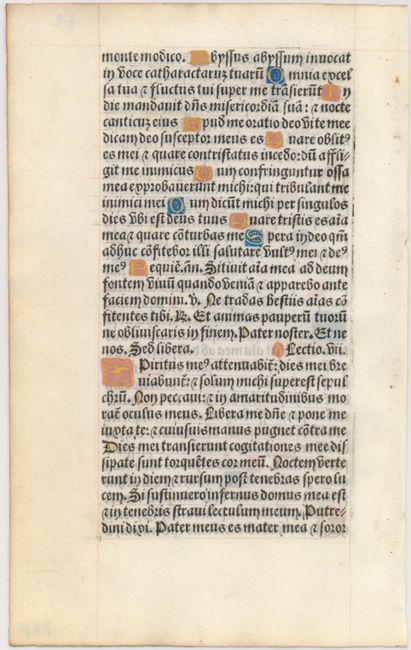 monte modico. Abyssus abyssum inuocat
in voce catharactaruz tuarū Omnia excel
sa tua ⁊ fluctus tui super me trāsierūt In
die mandauit dn̄s misericordiā suā: ⁊ nocte
canticuz eius Apud me oratio deo vite mee
dicam deo susceptor meus es Quare oblitꝰ
es mei ⁊ quare contristatus incedo: dū affli-
git me inimicus Dum confringuntur ossa
mea exprobauerunt michi: qui tribulant me
inimici mei Dum dicūt michi per singulos
dies vbi est deus tuus Quare tristis es aīa
mea ⁊ quare cōturbas me Spera in deo qm̄
adhuc cōfitebor illi salutare vultꝰ mei ⁊ deꝰ
meꝰ Requiē. añ. Sitiuit aīa mea ad deum
fontem viuū quando veniā ⁊ apparebo ante
faciem domini. ℣. Ne tradas bestiis aīas cō
fitentes tibi. ℟. Et animas pauperū tuorū
ne obliuiscaris in finem. Pater noster. Et ne
nos. Sed libera. Lectio. vii.
Spiritus meꝰ attenuabit̄: dies mei bre
uiabunt̄: ⁊ solum michi superest sepul
chrū. Non peccaui: ⁊ in amaritudinibus mo
rat̄ oculus meus. Libera me dn̄e ⁊ pone me
iuxta te: ⁊ cuiusuis manus pugnet cōtra me
Dies mei transierunt cogitationes mee dis-
sipate sunt torquētes cor meū. Noctem verte
runt in diem ⁊ rursum post tenebras spero lu
cem. Si sustinuero infernus domus mea est
⁊ in tenebris straui lectulum meum. Putre-
dini dixi. Pater meus es mater mea ⁊ soror